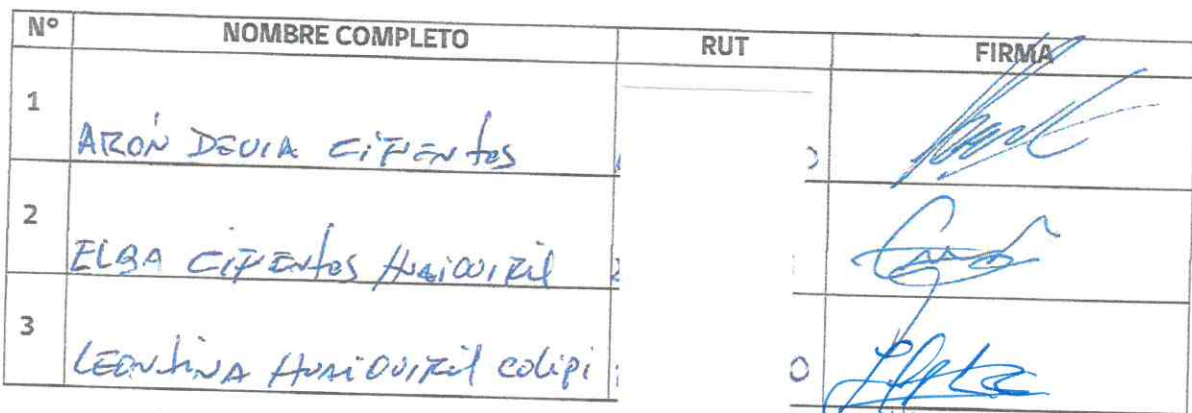 Nº NOMBRE COMPLETO RUT FIRMA
1 ARÓN DEVIA CIFUENTES
2 ELBA CIFUENTES HUAIQUIRIL
3 LEONTINA HUAIQUIRIL COLIPI